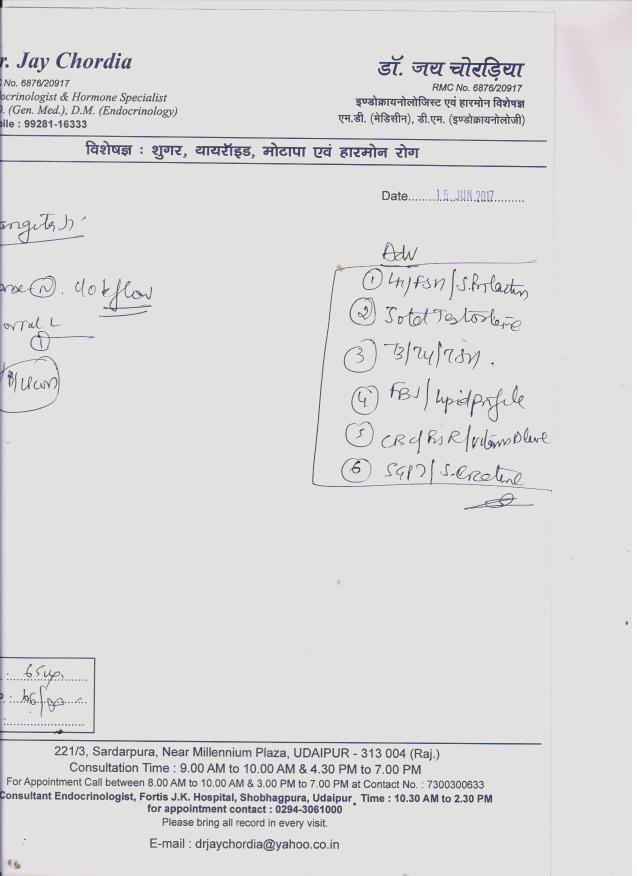 r. Jay Chordia
C No. 6876/20917
ocrinologist & Hormone Specialist
). (Gen. Med.), D.M. (Endocrinology)
bile : 99281-16333
डॉ. जय चोरड़िया
RMC No. 6876/20917
इण्डोक्रायनोलोजिस्ट एवं हारमोन विशेषज्ञ
एम.डी. (मेडिसीन), डी.एम. (इण्डोक्रायनोलोजी)
विशेषज्ञ : शुगर, थायरॉइड, मोटापा एवं हारमोन रोग
Date 15 JUN 2017
flow
Adv
① LH/FSH/S.Prolactin
② Total Testosterone
③ T3/T4/TSH.
④ FBS/Lipid profile
⑤ CBC/ESR/Vitamin D level
⑥ SGPT/S.creatine
: 65
:
:
221/3, Sardarpura, Near Millennium Plaza, UDAIPUR - 313 004 (Raj.)
Consultation Time : 9.00 AM to 10.00 AM & 4.30 PM to 7.00 PM
For Appointment Call between 8.00 AM to 10.00 AM & 3.00 PM to 7.00 PM at Contact No. : 7300300633
Consultant Endocrinologist, Fortis J.K. Hospital, Shobhagpura, Udaipur, Time : 10.30 AM to 2.30 PM
for appointment contact : 0294-3061000
Please bring all record in every visit.
E-mail : drjaychordia@yahoo.co.in